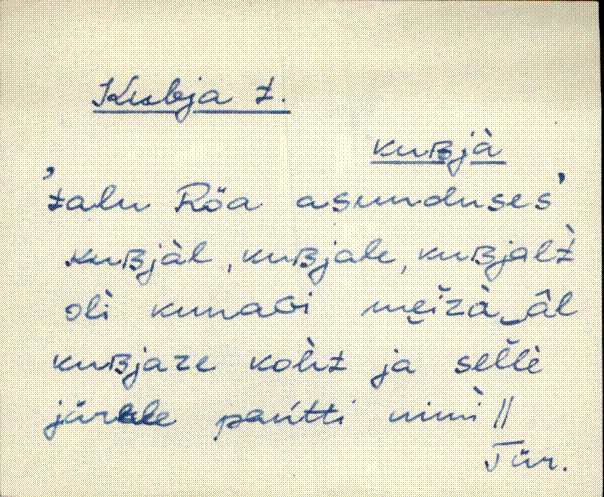 Kubja t.
kuʙjà
'talu Röa asunduses'
kuʙjàl, kuʙjale, kuʙjalt̀
oli kunaɢi mɐ̨izà‿âl
kuʙjaze koh̀t ja sellè
järele pańtti nimi̇̀ ||
Tür.